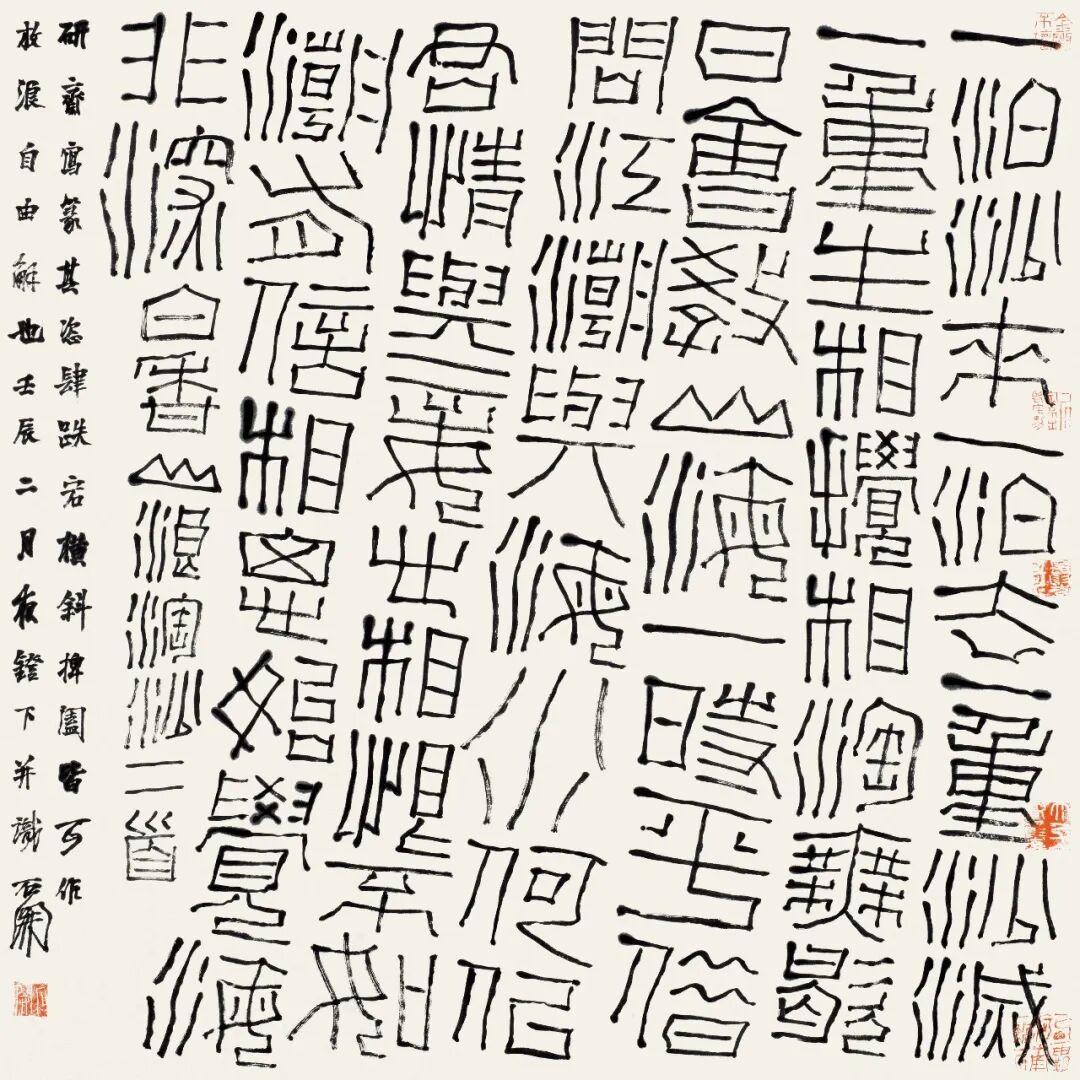 一泊沙來一泊去一重沙滅
一重生相攪相淘無歇
日會教山海一時平借
問江潮與海水何似
君情與妾心相恨不如
潮有信相思始覺海
非深白香山浪淘沙二首
研齋寫篆其恣肆跌宕橫斜捭闔皆可作
放浪自由解也壬辰二月夜鐙下并識石開